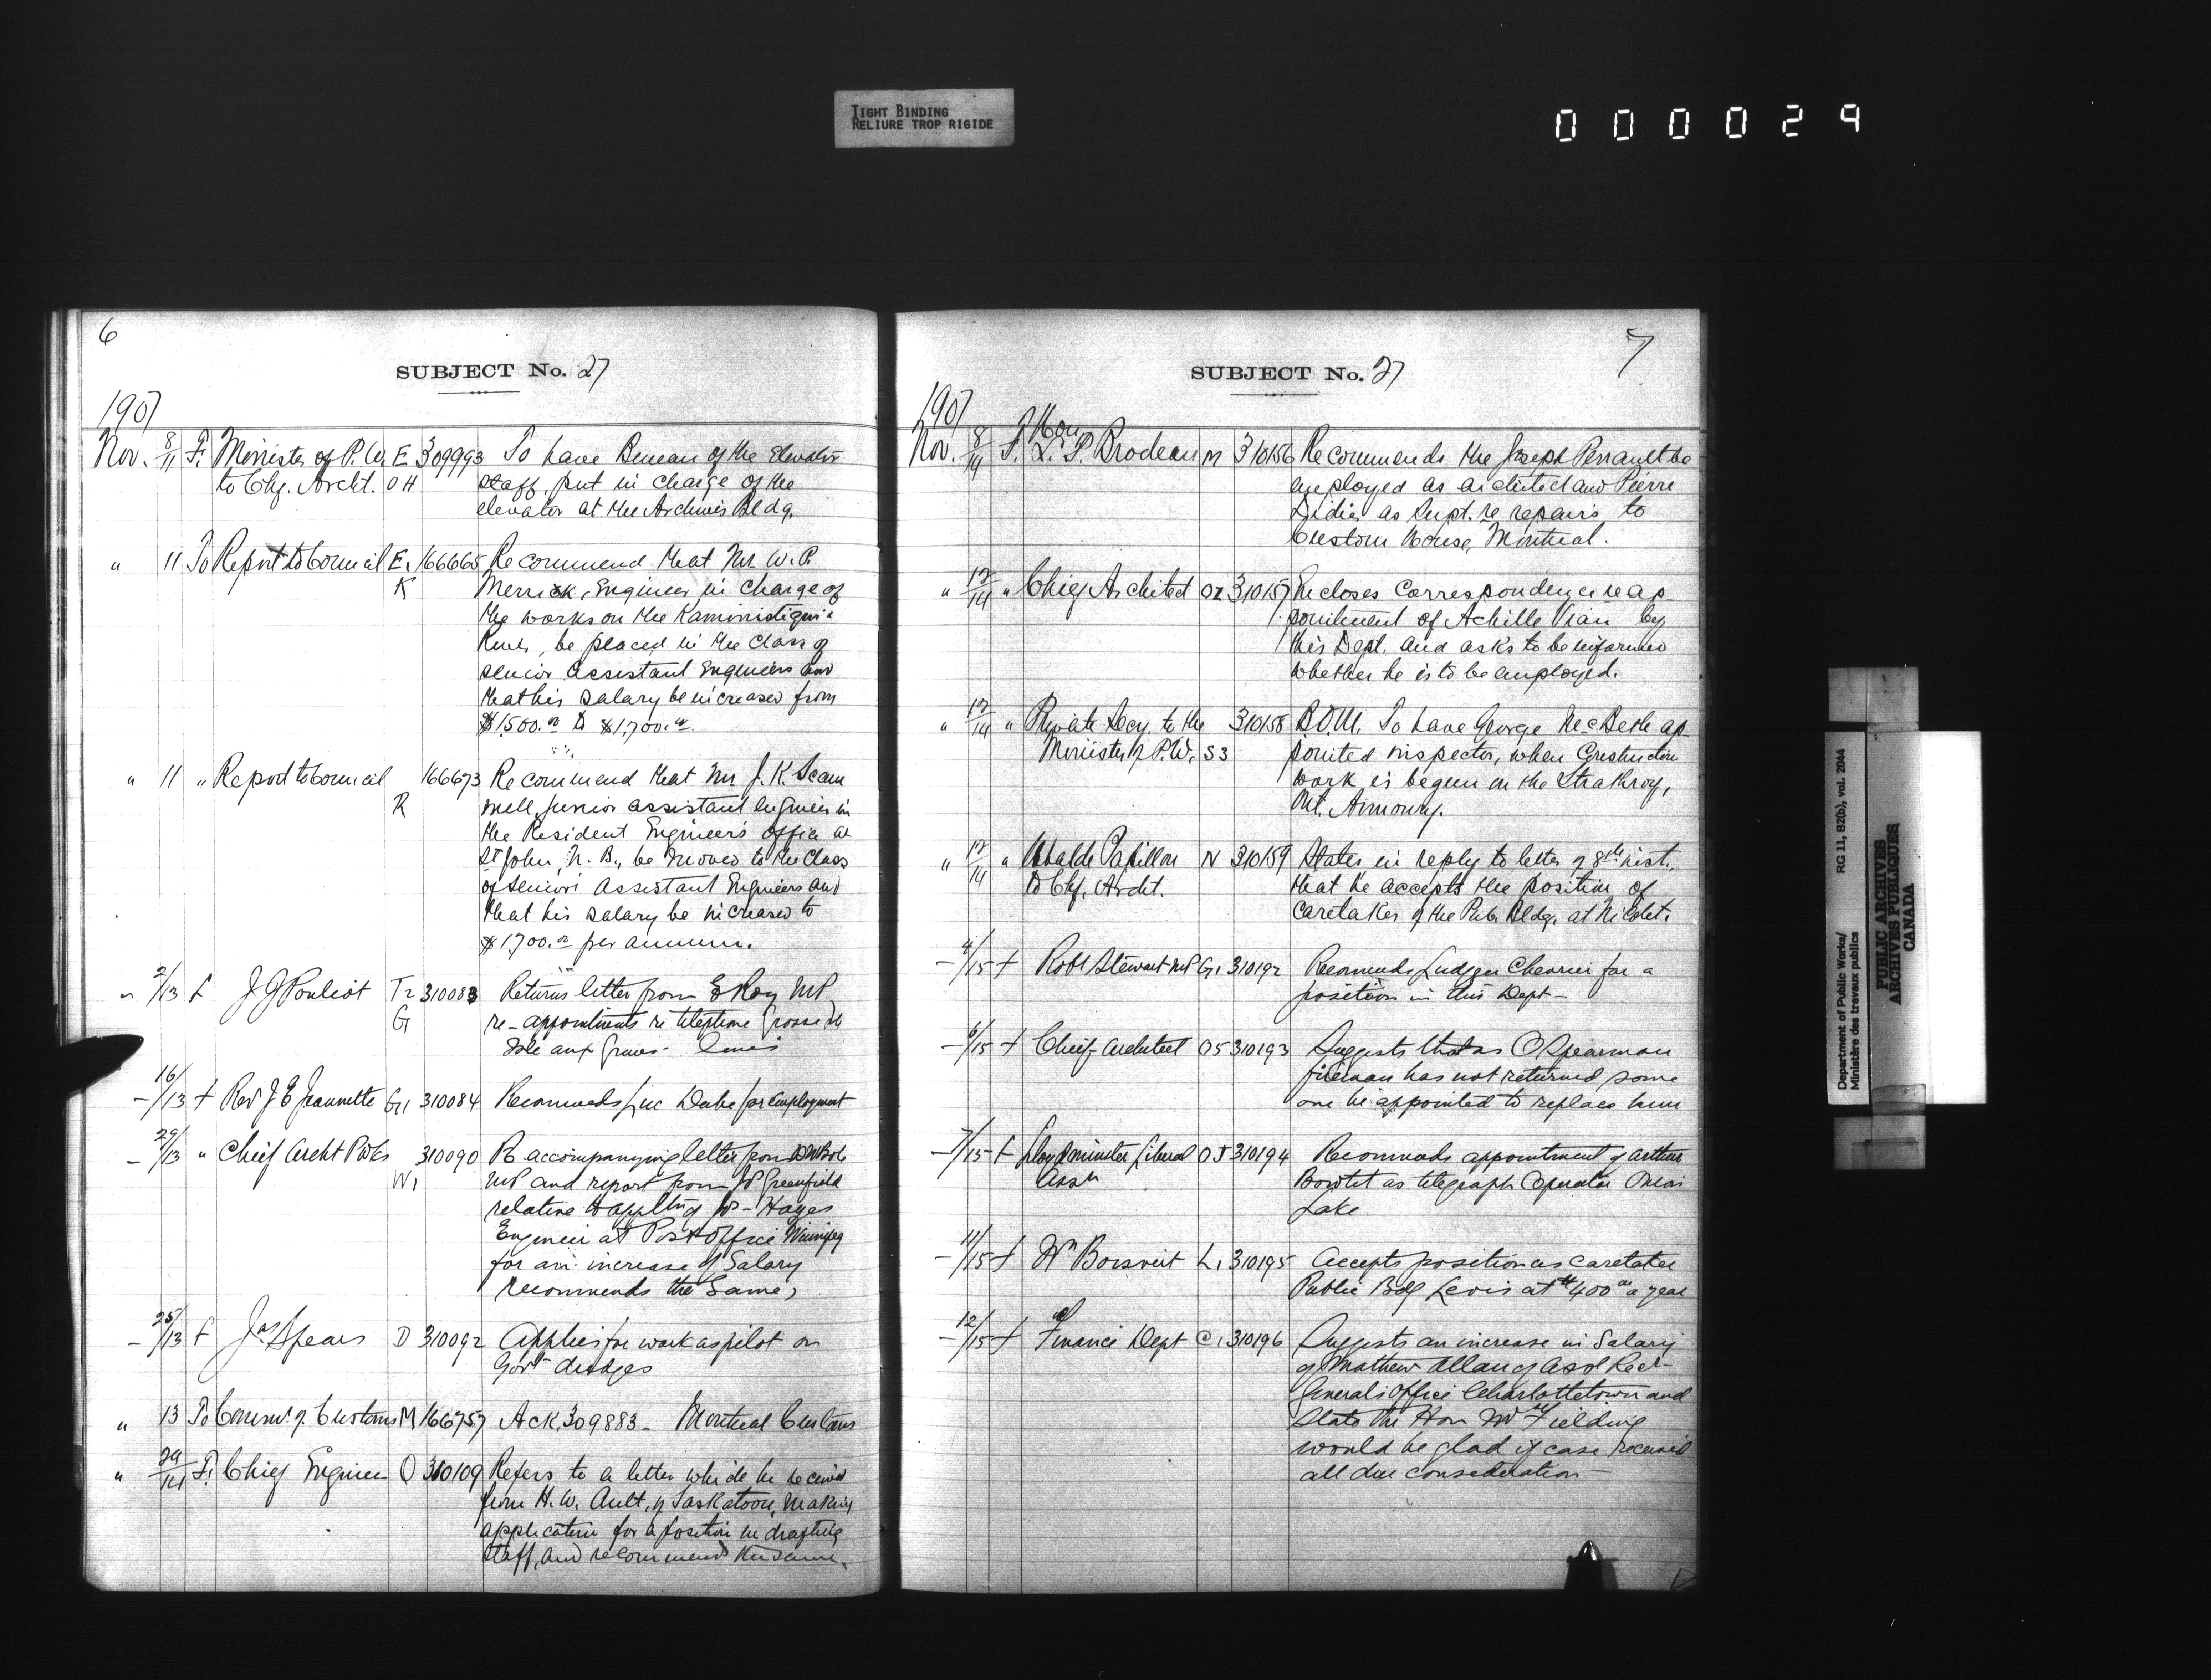 TIGHT BINDING
RELIURE TROP RIGIDE
000029
6
SUBJECT No. 27
1907
Nov. 8/11 F. Minister of P.W. E. 309993 To have Beneau of the Elevator
to Chf. Archt. OH staff, put in charge of the
elevator at the Archives Bldg.
" 11 To Report to Council E. 166665 Recommend that Mr. W. P.
K Merrick, Engineer in charge of
the works on the Kaministiquia
River, be placed in the class of
senior assistant Engineers and
that his salary be increased from
$1,500.00 to $1,700.00.
" 11 " Report to Council 166673 Recommend that Mr J. K. Scam
R mell, Junior assistant engineer in
the Resident Engineer's office at
St John, N. B., be moved to the class
of Senior Assistant Engineers and
that his salary be increased to
$1,700.00 per annum.
" 2/13 f J G Pouliot T2 310083 Returns letter from E Roy MP
G re-appointments re telephone Grosse Isle
Isle aux Grues - Levis
16/13 f Rev J E Jeannette G11 310084 Recommends Luc Dube for employment
29/13 " Chief Archt P Wks 310090 R accompanying letter from DW Bole
W1 MP and report from JP Greenfield
relative to appltn of Jos - Hayes
Engineer at Post Office Winnipeg
for an increase of Salary
recommends the same,
25/13 f Jas Spears D 310092 Applies for work as pilot on
Govt dredges
" 13 To Commr. of Customs M 166757 Ack. 309883 - Montreal Customs
" 29/14 F. Chief Engineer O 310109 Refers to a letter which he received
from H. W. Ault, of Saskatoon, making
application for a position in drafting
staff, and recommends the same.
7
SUBJECT No. 27
1907
Hon
Nov. 8/14 F. L. P. Brodeur M 310156 Recommends the Joseph Perrault be
employed as architect and Pierre
Didier as Supt. re repairs to
Custom House, Montreal.
" 12/14 " Chief Architect O2 310157 Encloses correspondence re ap
pointment of Achille Vian by
this Dept. and asks to be informed
whether he is to be employed.
" 12/14 " Private Secy. to the 310158 B.D.M. To have George McBeth ap
Minister of P.W. S3 pointed inspector, when Construction
work is begun on the Strathroy,
Ont. Armoury.
" 12/14 " Ubalde Papillon N 310159 States in reply to letter of 8th inst.
to Chf. Archt. that he accepts the position of
caretaker of the Pub. Bldg. at Nicolet.
4/15 f Robt Stewart MP G1 310192 Recommends Ludger Cherrier for a
position in this Dept -
6/15 f Chief Architect O5 310193 Suggests that as O Spearman
fireman has not returned some
one be appointed to replace him
7/15 f Lloydminster Liberal OJ 310194 Recommends appointment of Arthur
Assn Bowtet as telegraph Operator Onion
Lake
11/15 f Wm Boisvert L1 310195 Accepts position as caretaker
Public Bdg Levis at $400.00 a year
12/15 f Finance Dept C1 310196 Suggests an increase in Salary
of Mathew Allan of Asst Recr-
General's Office Charlottetown and
states the Hon Mr Fielding
would be glad if case received
all due consideration -
Department of Public Works/ RG 11, B2(b), vol. 2044
Ministère des travaux publics
PUBLIC ARCHIVES
ARCHIVES PUBLIQUES
CANADA